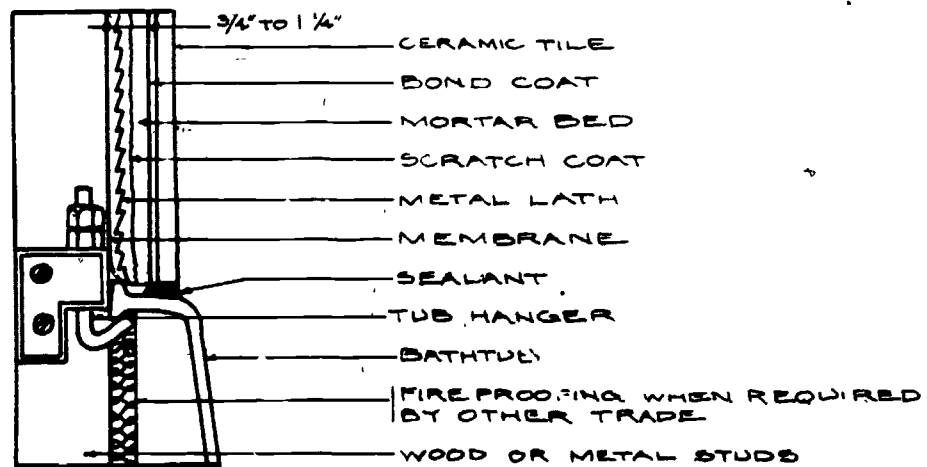 3/4" TO 1 1/4"
CERAMIC TILE
BOND COAT
MORTAR BED
SCRATCH COAT
METAL LATH
MEMBRANE
SEALANT
TUB HANGER
BATHTUB
FIREPROOFING WHEN REQUIRED
BY OTHER TRADE
WOOD OR METAL STUDS